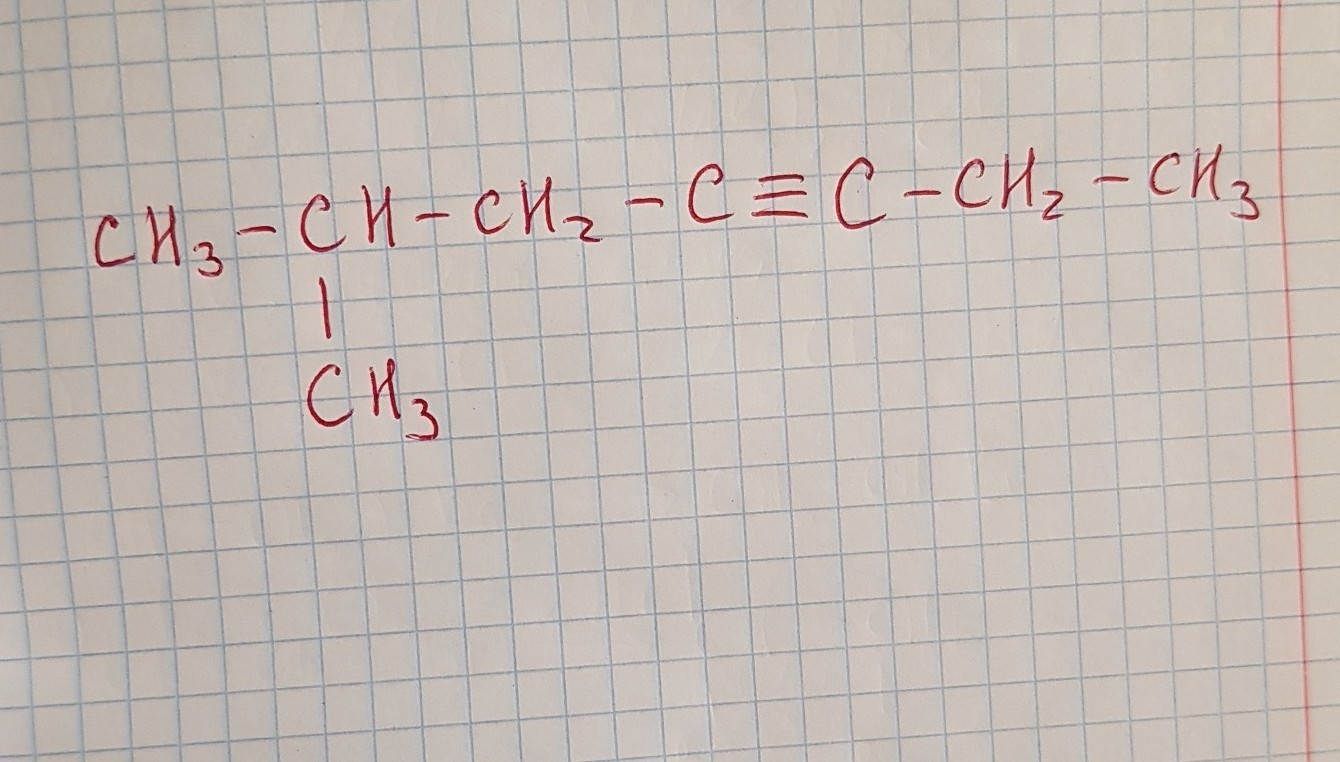 CH₃-CH-CH₂-C≡C-CH₂-CH₃
|
CH₃